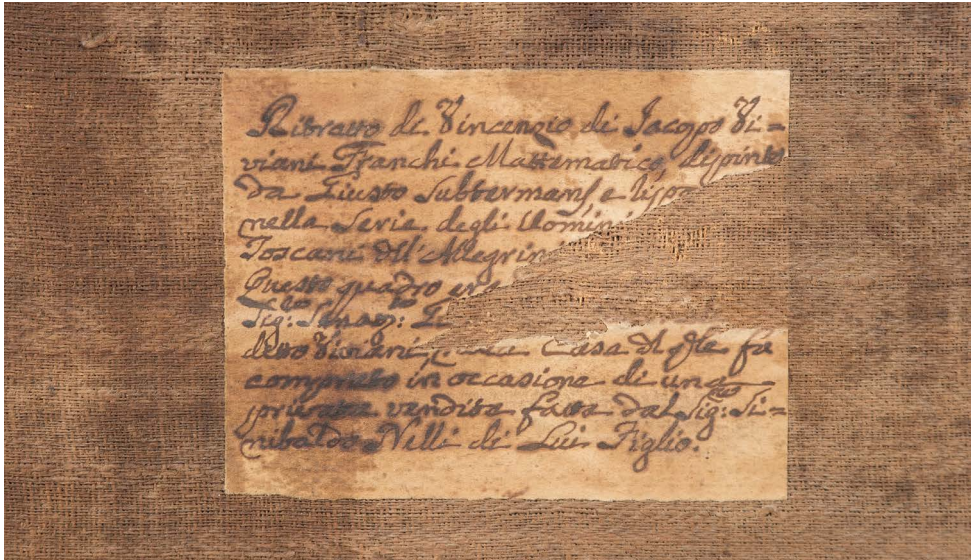 Ritratto di Vincenzio di Jacopo Vi=
viani Franchi Mattematico, dipinto
da Giusto Subtermans, e
nella Serie degli Uomini
Toscani dell' Allegrini
Questo quadro era
Sig:
detto Viviani, Casa del fu
comprato in occasione di una
privata vendita fatta dal Sig: Si=
nibaldo Nelli di Lui Figlio.